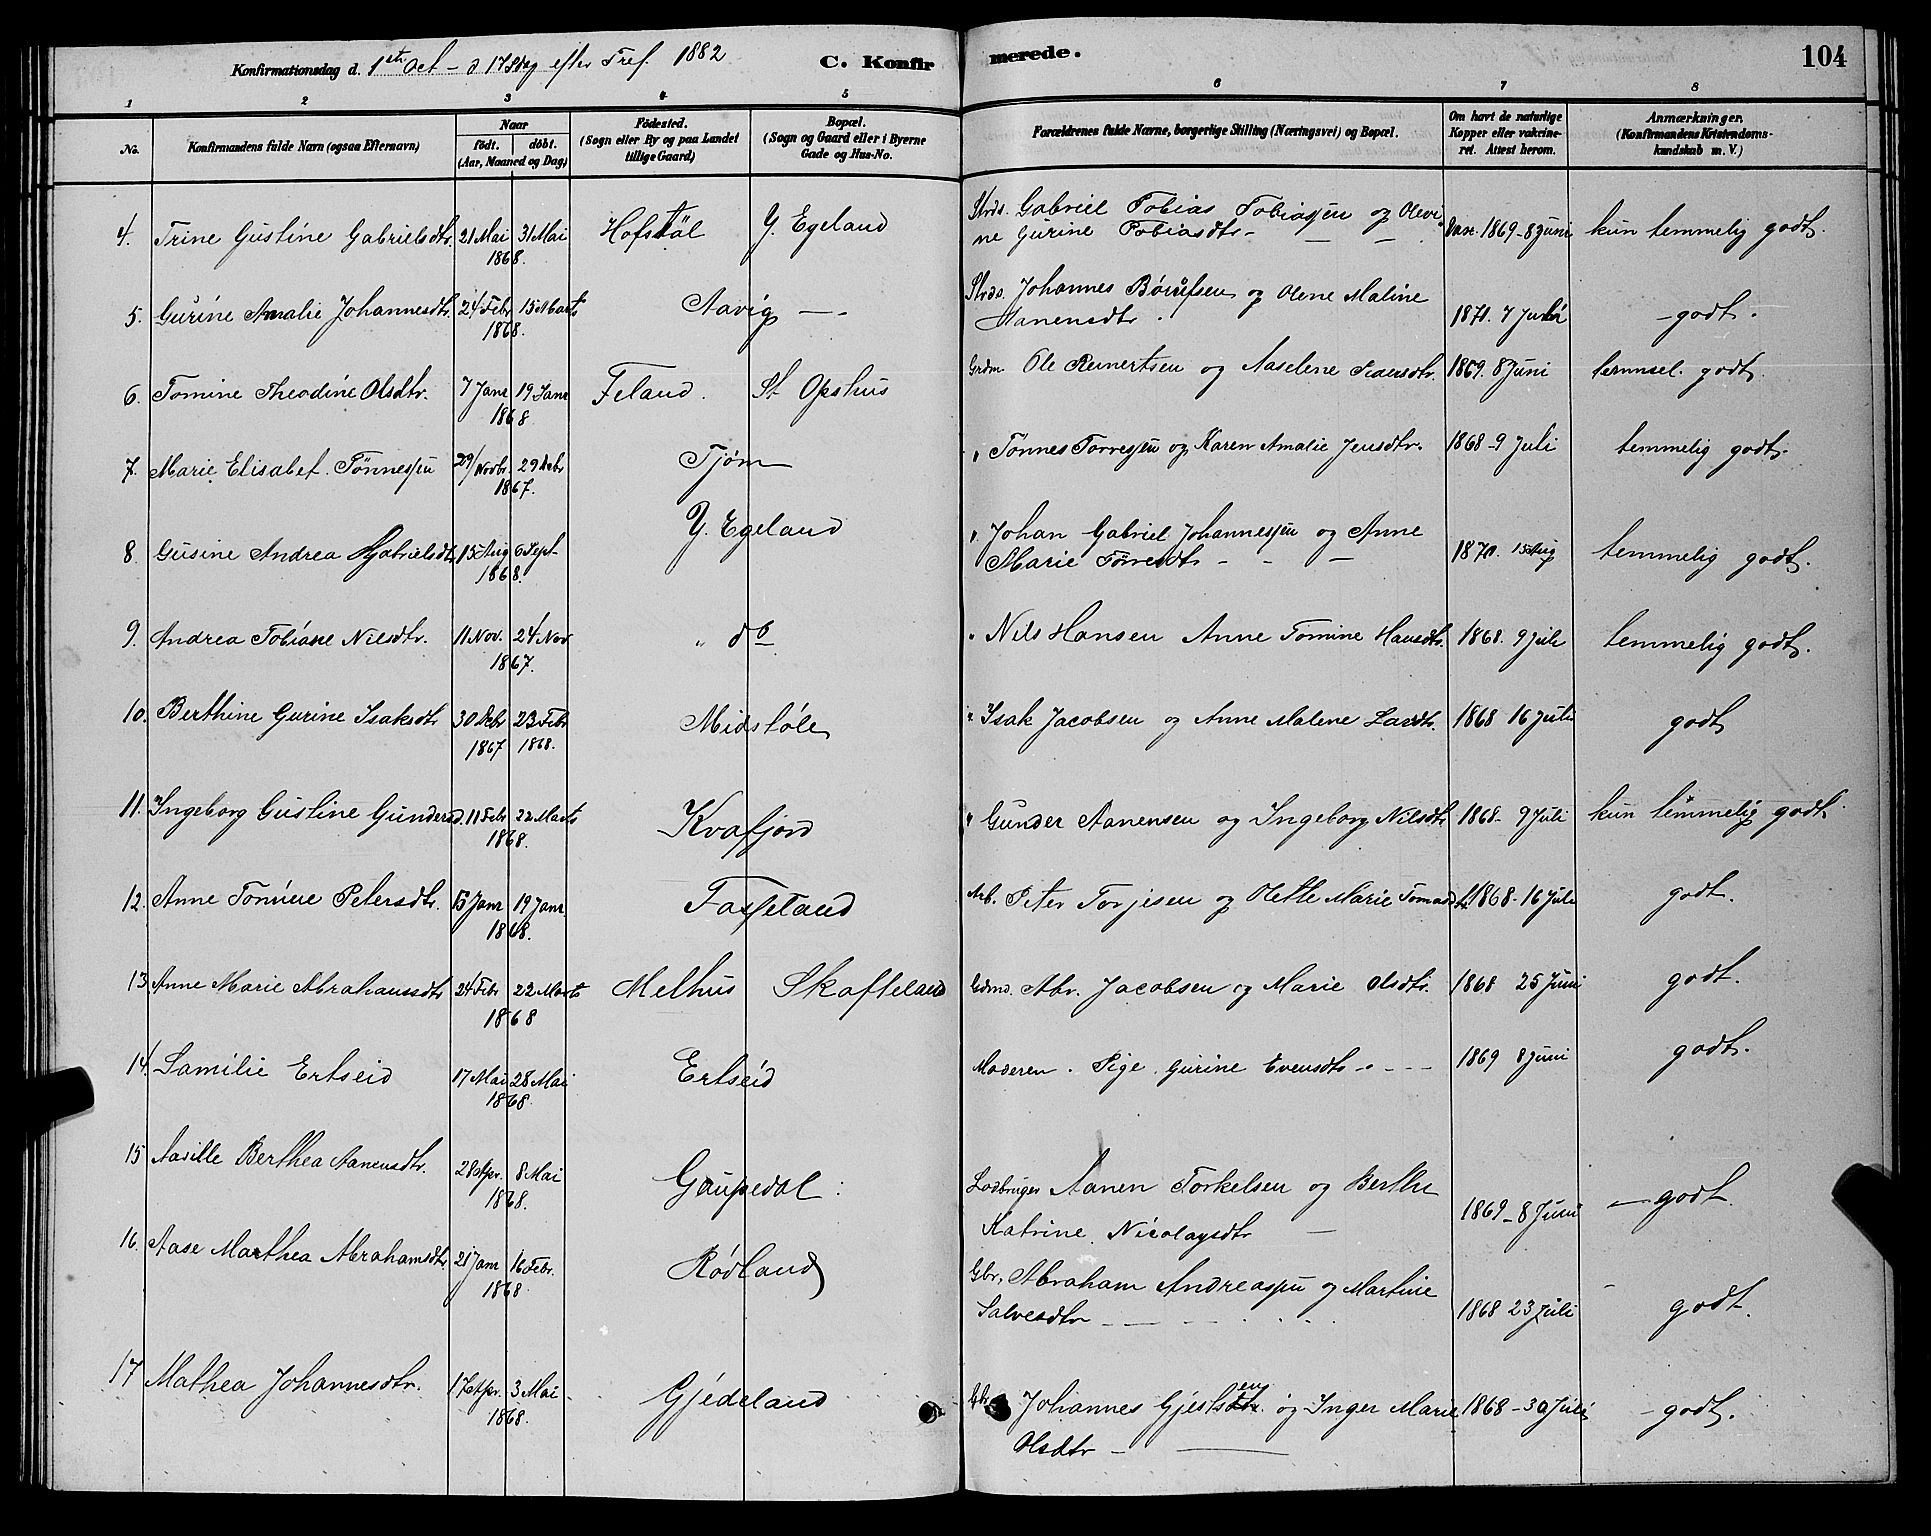 Konfirmationsdag d. 1ste Oct – d 17 Sdag efter Tref. 1882 C. Konfir merede. 104
1 2 3 4 5 6 7 8
No. Konfirmandens fulde Navn (ogsaa Efternavn) Naar födt. döbt. (Aar, Maaned og Dag) Födested. (Sogn eller By og paa Landet tillige Gaard) Bopæl. (Sogn og Gaard eller i Byerne Gade og Hus-No. Forældrenes fulde Navne, borgerlige Stilling (Næringsvei) og Bopæl. Om havt de naturlige Kopper eller vakcineret. Attest herom. Anmærkninger. (Konfirmandens Kristendomskundskab m. V.)
4. Trine Gustine Gabrielsdtr. 21 Mai 31 Mai 1868. Hofstøl Y. Egeland Strds. Gabriel Tobias Tobiassen og Olevi
ne Gurine Tobiasdtr – – – 1869 – 8 Juni kun temmelig godt.
5. Gurine Amalie Johannesdtr. 24 Febr 15 Marts 1868. Aavig — Strds. Johannes Børufsen og Olene Maline
Aanensdtr. 1870. 7 Juli – godt.
6. Tomine Theodine Olsdtr. 7 Janr 19 Janr 1868 Feland. St Opshus Grdm. Ole Reinertsen og Aaselene Pedersdtr. 1869. 8 Juni temmel. godt
7. Marie Elisabet. Tønnessen 29/ Novbr. 29 Debr 1867. Tjøm " Tønnes Torressen og Karen Amalie Jensdtr. 1868 – 9 Juli temmelig godt.
8. Gusine Andrea Gabrielsdtr 15 Aug 6 Sept 1868. Y. Egeland " Johan Gabriel Johannessen og Anne
Marie Tørresdtr – – — 1870. 15 Aug temmelig godt.
9. Andrea Tobiane Nilsdtr. 11 Nov. 24 Nov 1867. " do " Nils Hansen Anne Tomine Hansdtr. 1868. 9 Juli temmelig godt.
10. Berthine Gurine Isaksdtr 30 Debr 23 Febr 1867 1868. Midstøle " Isak Jacobsen og Anne Malene Larsdtr. 1868 16 Juli godt
11. Ingeborg Gustine Gundersd. 11 Febr 22 Marts 1868. Kvafjord " Gunder Aanensen og Ingeborg Nilsdtr 1868 – 9 Juli kun temmelig godt.
12. Anne Tomine Petersdtr. 13 Janr 19 Janr 1868. Fasseland Arb. Peter Torjesen og Olette Marie Tomasdtr 1868 – 16 Juli godt.
13. Anne Marie Abrahamsdtr 24 Febr 22 Marts 1868 Melhus Skafteland Gdmd. Abr. Jacobsen og Marie Olsdtr. 1868 25 Juni godt.
14. Samilie Ertseid 17 Mai 28 Mai 1868. Ertseid Moderen. Pige Gurine Evensdtr 1869 8 Juni godt.
15 Aaville Berthea Aanensdtr. 28 Apr. 8 Mai 1868. Gaupedal : Lodbruger Aanen Torkelsen og Berthe
Katrine Nicolaysdtr — 1869 – 8 Juni – godt
16. Aase Marthea Abrahamsdtr 21 Janr 16 Febr. 1868 Rødland Gbr. Abraham Andreassen og Martine
Salvesdtr 1868 23 Juli – godt.
17 Mathea Johannesdtr. 17 Apr. 3 Mai – 1868. Gjedeland Gbr Johannes Gjertsen og Inger Marie
Olsdtr – 1868 – 30 Juli – godt.